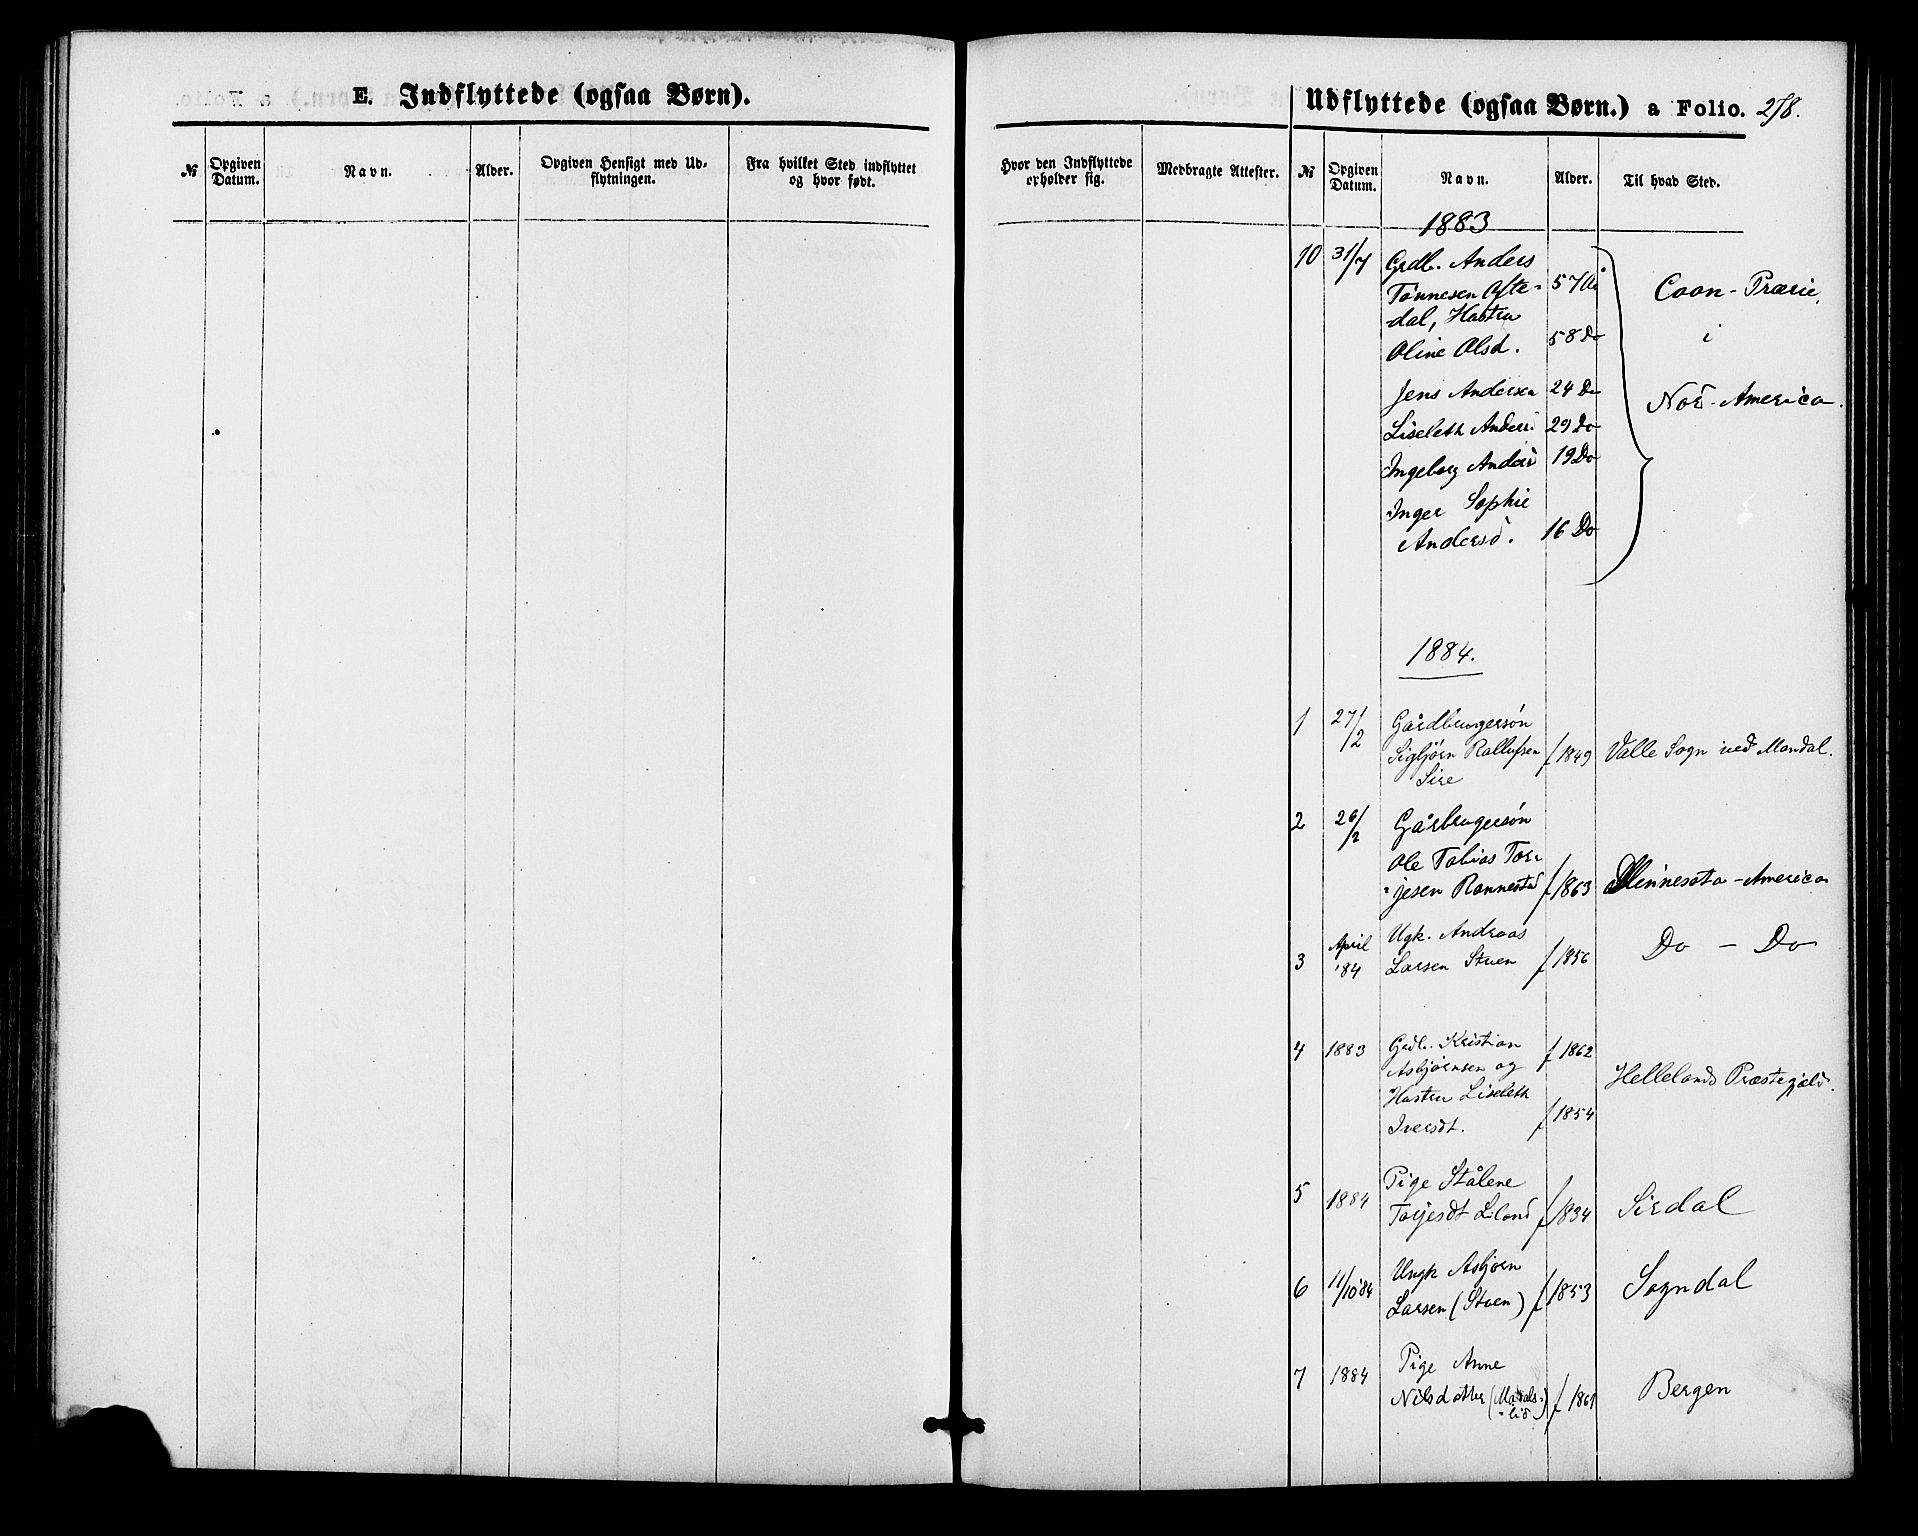 E. Indflyttede (ogsaa Børn).
№
Opgiven Datum.
Navn.
Alder.
Opgiven Hensigt med Udflytningen.
Fra hvilket Sted indflyttet og hvor født.
Hvor den Indflyttede opholder sig.
Medbragte Attester.
Udflyttede (ogsaa Børn.) a Folio. 278.
№
Opgiven Datum.
Navn.
Alder.
Til hvad Sted.
1883
10 31/7 Grdb. Anders
Tønnesen Ofte- 57 År
-dal, Hustru
Oline Olsd. 58 Do
Coon-Prærie,
i
Jens Andersen 24 Do
Nor-America.
Liseleth Anders. 29 Do
Ingeborg Andersd 19 Do
Inger Sophie
Andersd. 16 Do
1884.
1 27/2 Gårdbrugersøn
Sigbjørn Rollufsen f 1849 Valle Sogn ved Mandal.
Sire
2 26/2 Gårbrugersøn
Ole Tobias Tor-
-jesen Rannestad f 1863 Minnesota-America
3 April '84 Ugk. Andreas
Larsen Stuen f 1856 Do - Do
4 1883 Grdb. Kristian f 1862
Asbjørnsen og
Hellelands Præstegjæld.
Hustru Liseleth
Iversdt. f 1854
5 1884 Pige Stålene
Torjesdt Liland f 1834 Sirdal
6 11/10 '84 Ungk Asbjørn
Larsen (Stuen) f 1853 Sogndal
7 1884 Pige Anne
Nilsdatter f 1861 Bergen